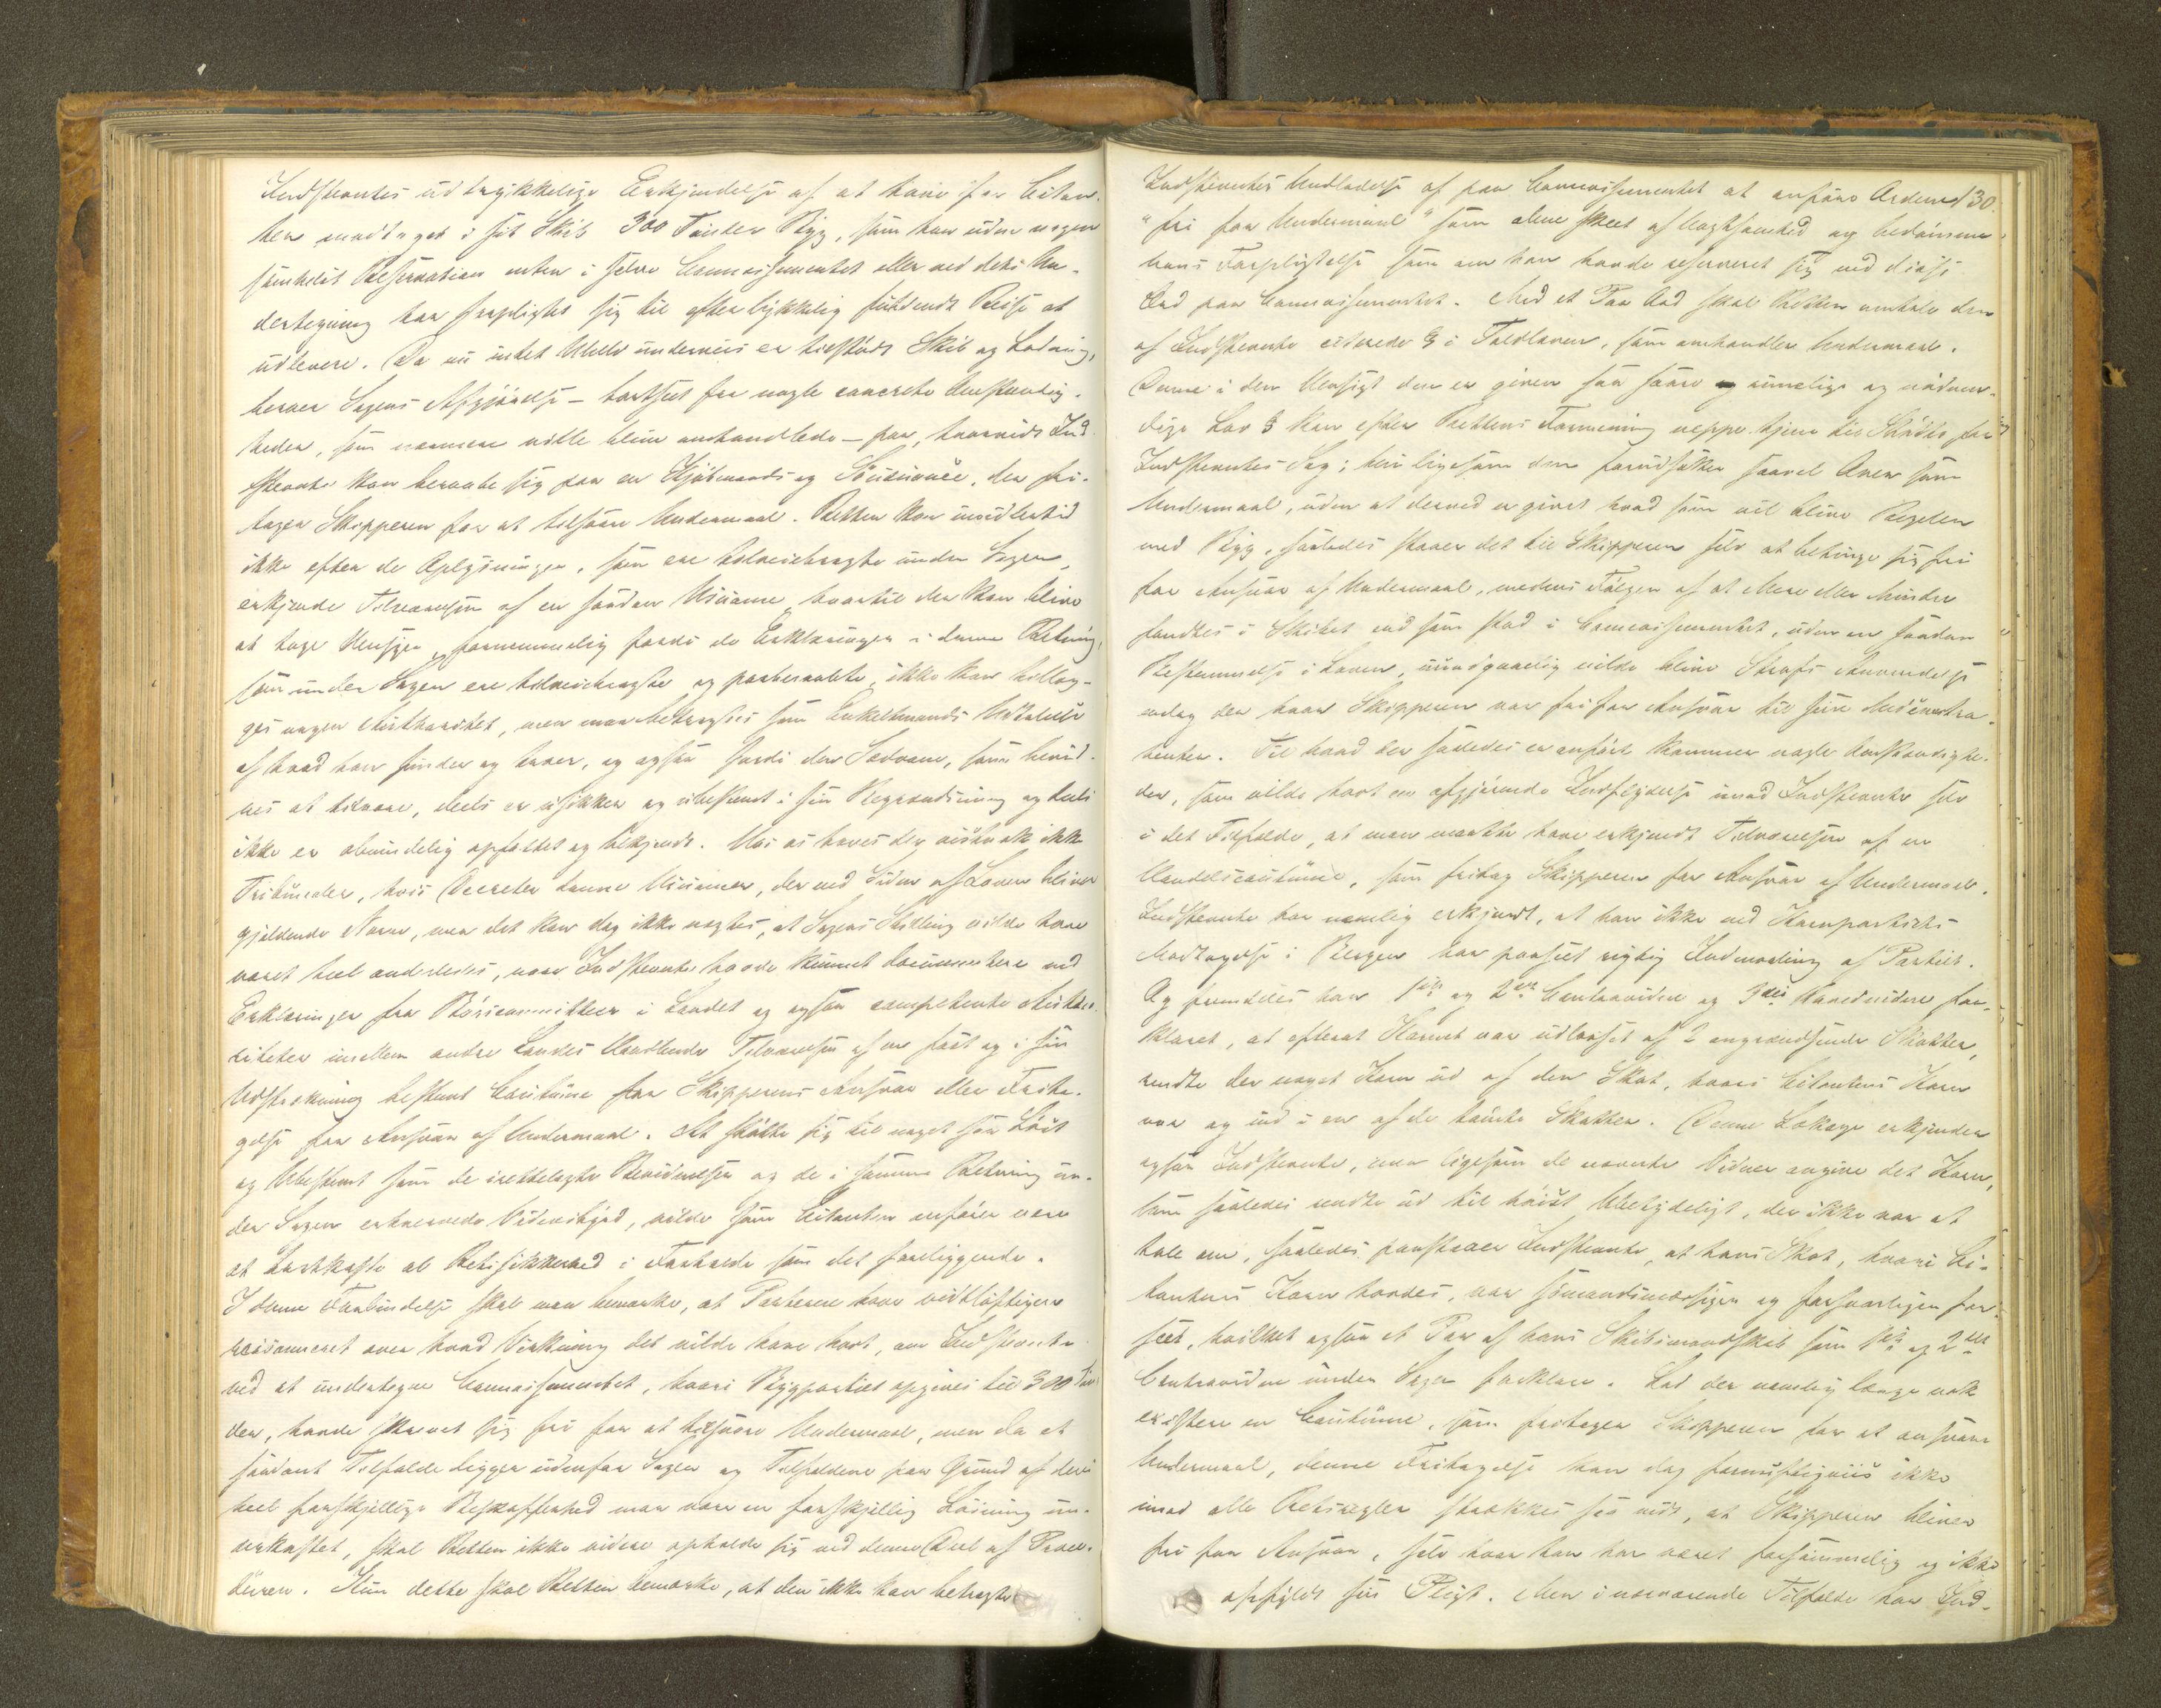 Indstevntes udtrykkelige Erkjendelse af at have for Citan-
ten modtaget i sit Skib 300 Tønder Byg, som han uden nogen
somhelst Reservation enten i selve Connoisementet eller ved dets Un-
dertegning har forpligtet sig til efter lykkelig fuldendt Reise at
udlevere. Da nu intet Uheld underveis er tilstødt Skib og Ladning,
beroer Sagens Afgjørelse – bortseet fra nogle concrete Omstændig-
heder, som nærmere ville blive omhandlede – paa, hvorvidt Ind-
stevnte kan beraabe sig paa en Kjøbmands og Søusance, der fri-
tager Skipperen for at tilsvare Undermaal. Retten kan imidlertid
ikke efter de Oplysninger, som ere tilveiebragte under Sagen,
erkjende Tilværelsen af en saadan Usance, hvortil der kan blive
at tage Hensyn, fornemmelig fordi de Erklæringer i denne Retning,
som under Sagen ere tilveiebragte og paaberaabte, ikke kan tillæg-
ges nogen Autoritet, men maa betragtes som Enkeltmands Udtalelse
af hvad han finder og troer, og ogsaa fordi den Sædvane, som bevid-
nes at tilvære, deels er usikker og ubestemt i sin Begrændsning og deels
ikke er almindelig opfattet og tilkjendt. Hos os haves der vistnok ikke
Tribunaler, hvis Decreter danne Usancer, der ved Siden af Loven bliver
gjældende Norm, men det kan dog ikke nægtes, at Sagens Stilling vilde have
været heel anderledes, naar Indstevnte havde kunnet documentere ved
Erklæringer fra Børscommitteer i Landet og ogsaa competente Autho-
riteter imellem andre Landes Handlende Tilværelsen af en fast og i sin
Udstrækning bestemt Coutume for Skipperens Ansvar eller Frita-
gelse for Ansvar af Undermaal. At støtte sig til noget saa Løst
og Ubestemt som de irettelagte Bevidnelser og de i samme Retning un-
der Sagen erhvervede Vidnesbyrd, vilde som Citanten anfører være
at bortkaste al Retssikkerhed i Forholde som det foreliggende.
I denne Forbindelse skal man bemærke, at Parterne have vidtløftigen
raisonneret over hvad Virkning det vilde have havt, om Indstevnte
ved at undertegne Connoisementet, hvori Bygpartiet opgives til 300 Tøn-
der, havde skrevet sig fri for at tilsvare Undermaal, men da et
saadant Tilfælde ligger udenfor Sagen og Tilfældene paa Grund af deres
heel forskjellige Beskaffenhed maa være en forskjellig Løsning un-
derkastet, skal Retten ikke videre opholde sig ved denne Deel af Proce-
duren. Kun dette skal Retten bemærke, at den ikke kan betragte
Indstevntes Undladelse af paa Connoisementet at anføre Ordene 130.
"fri for Undermaal" som alene skeet af Uagtsomhed og bedømme
hans Forpligtelse som om han havde reserveret sig ved disse
Ord paa Connoisementet. Med et Par Ord skal Retten omtale den
af Indstevnte citerede § i Toldloven, som omhandler Undermaal.
Denne i den Hensigt den er given saa saare rimelige og nødven-
dige Lov § kan efter Rettens Formening neppe tjene til Støtte for
Indstevntes Sag; thi ligesom den forudsætter saavel Over som
Undermaal, uden at derved er givet hvad som vil blive Regelen
med Byg, saaledes staaer det til Skipperen selv at betinge sig fri
for Ansvar af Undermaal, medens Følgen af at Mere eller Mindre
fandtes i Skibet end som stod i Connoisementet, uden en saadan
Bestemmelse i Loven, uundgaaelig vilde blive Strafs Anvendelse
endog der hvor Skipperen var fri for Ansvar til sine Medcontra-
henter. Til hvad der saaledes er anført kommer nogle Omstændighe-
der, som vilde havt en afgjørende Indflydelse imod Indstevnte selv
i det Tilfælde, at man maatte have erkjendt Tilværelsen af en
Handelscoutume, som fritog Skipperen for Ansvar af Undermaal.
Indstevnte har nemlig erkjendt, at han ikke ved Kornpartiets
Modtagelse i Bergen har paaseet rigtig Indmaaling af Partiet.
Og fremdeles har 1ste og 2det Contravidne og 3die Hovedvidne for-
klaret, at efterat Kornet var udlosset af 2 angrændsende Skotter,
rendte der noget Korn ud af den Skot, hvori Citantens Korn
var og ind i en af de tomte Skotter. Denne Lækage erkjender
ogsaa Indstevnte, men ligesom de nævnte Vidner angive det Korn,
som saaledes rendte ud til høist Ubetydeligt, der ikke var at
tale om, saaledes paastaaer Indstevnte, at hans Skot, hvori Ci-
tantens Korn havdes, var sømandsmæssigen og forsvarligen for-
seet, hvilket ogsaa et Par af hans Skibsmandskab som 1ste og 2det
Contravidne under Sagen forklare. Lad der nemlig længe nok
existere en Coutume, som fritager Skipperen for at ansvare
Undermaal, denne Fritagelse kan dog fornuftigviis ikke
imod alle Retsregler strækkes saa vidt, at Skipperen bliver
fri for Ansvar, selv hvor han har været forsømmelig og ikke
opfyldt sin Pligt. Men i nærværende Tilfælde har Ind-